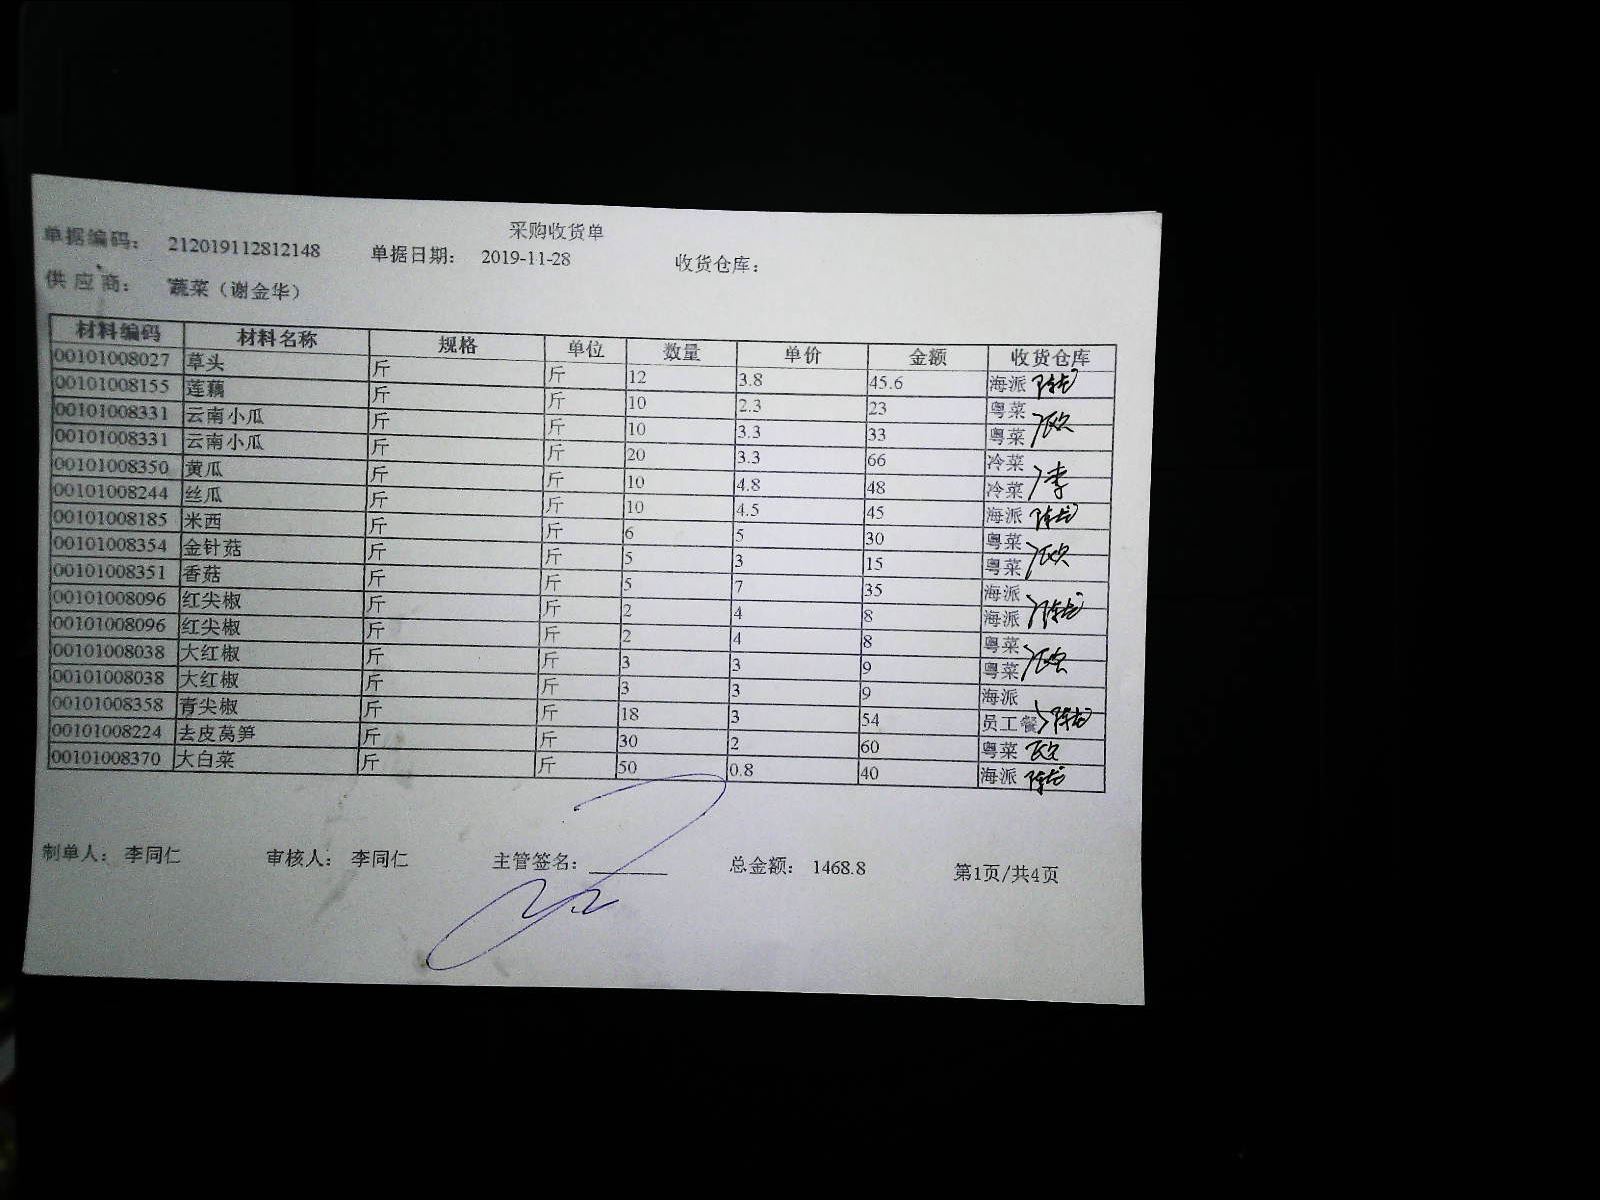 采购收货单
单据编码： 212019112812148 单据日期： 2019-11-28 收货仓库：
供应商： 蔬菜（谢金华）
材料编码 材料名称 规格 单位 数量 单价 金额 收货仓库
00101008027 草头 斤 斤 12 3.8 45.6 海派
00101008155 莲藕 斤 斤 10 2.3 23 粤菜
00101008331 云南小瓜 斤 斤 10 3.3 33 粤菜
00101008331 云南小瓜 斤 斤 20 3.3 66 冷菜
00101008350 黄瓜 斤 斤 10 4.8 48 冷菜 李
00101008244 丝瓜 斤 斤 10 4.5 45 海派
00101008185 米西 斤 斤 6 5 30 粤菜
00101008354 金针菇 斤 斤 5 3 15 粤菜
00101008351 香菇 斤 斤 5 7 35 海派
00101008096 红尖椒 斤 斤 2 4 8 海派
00101008096 红尖椒 斤 斤 2 4 8 粤菜
00101008038 大红椒 斤 斤 3 3 9 粤菜
00101008038 大红椒 斤 斤 3 3 9 海派
00101008358 青尖椒 斤 斤 18 3 54 员工餐
00101008224 去皮莴笋 斤 斤 30 2 60 粤菜
00101008370 大白菜 斤 斤 50 0.8 40 海派
制单人： 李同仁 审核人： 李同仁 主管签名： 总金额： 1468.8 第1页/共4页